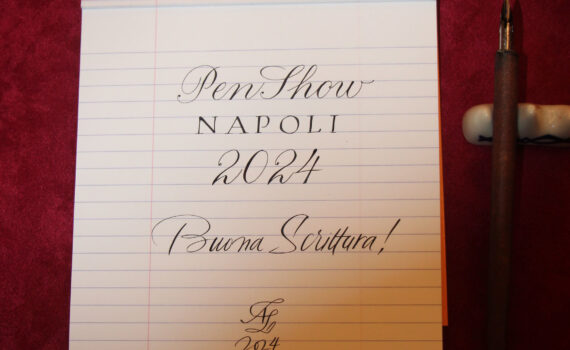 Pen Show
NAPOLI
2024
Buona Scrittura!
AL
2024